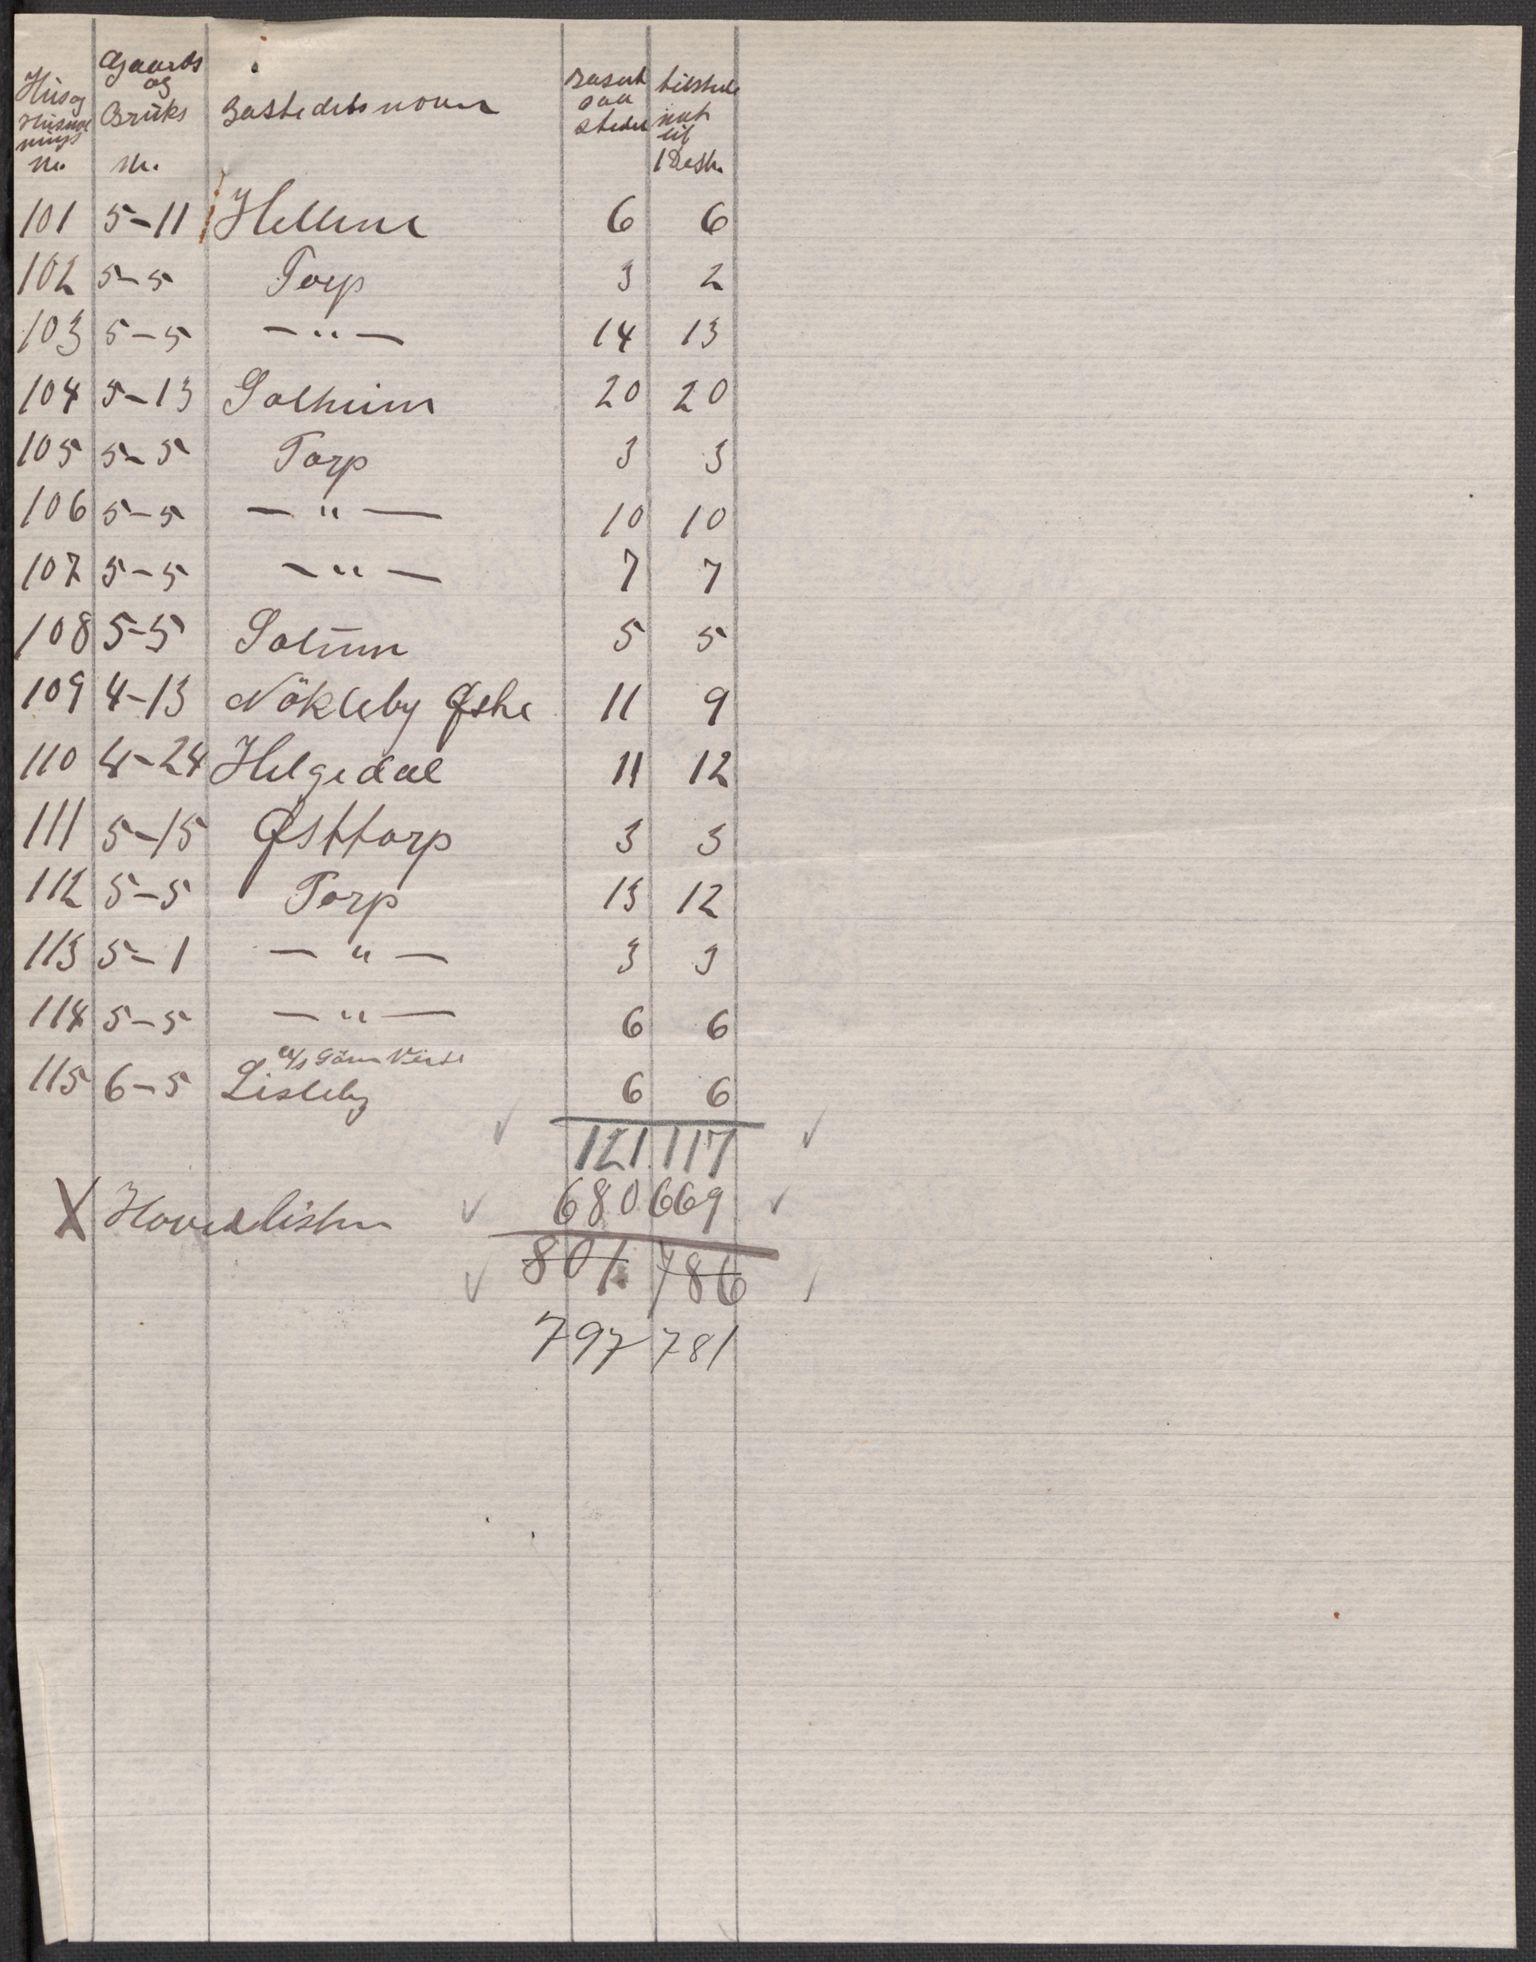 Hus og Husholdnings Nr. | Gaards og Bruks Nr. | Bostedets navn | bosatt paa stedet | tilstede nat til 1 Desbr.
101 5-11 Hellene 6 6
102 5-5 Torp 3 2
103 5-5 — " — 14 13
104 5-13 Solheim 20 20
105 5-5 Torp 3 3
106 5-5 — " — 10 10
107 5-5 — " — 7 7
108 5-5 Solum 5 5
109 4-13 Nökleby Østre 11 9
110 4-24 Helgedal 11 12
111 5-15 Østtorp 3 3
112 5-5 Torp 13 12
113 5-1 — " — 3 3
114 5-5 — " — 6 6
115 6-5 Lisleby 6 6
121 117
X Hovedlisten 680 669
801 786
797 781